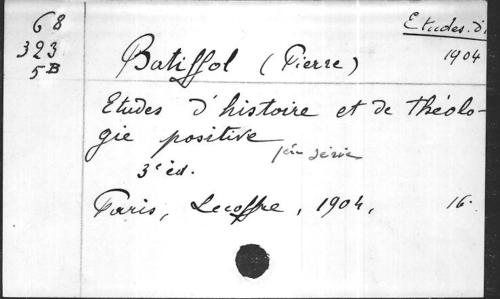 68
323
5B
Etudes. d'
1904
Batiffol (Pierre)
Etudes d'histoire et de théolo-
gie positive
1ère série
3e éd.
Paris, Lecoffre, 1904, 16.